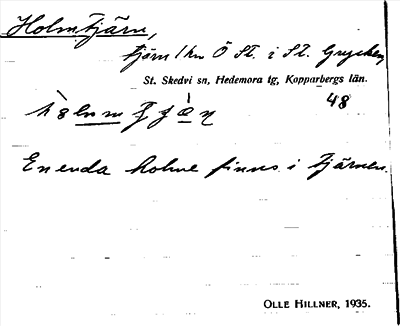 Holmtjärn,
tjärn 1 km Ö St. i St. Grycken
St. Skedvi sn, Hedemora tg, Kopparbergs län.
48
En enda holme finns i tjärnen.
OLLE HILLNER, 1935.